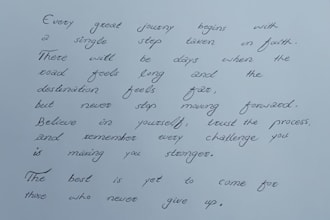 Every great journy begins with
a single step taken in faith.
There will be days when the
road feels long and the
destination feels far,
but never stop moving forward.
Believe in yourself, trust the process,
and remember every challenge you
is making you stronger.
The best is yet to come for
those who never give up.